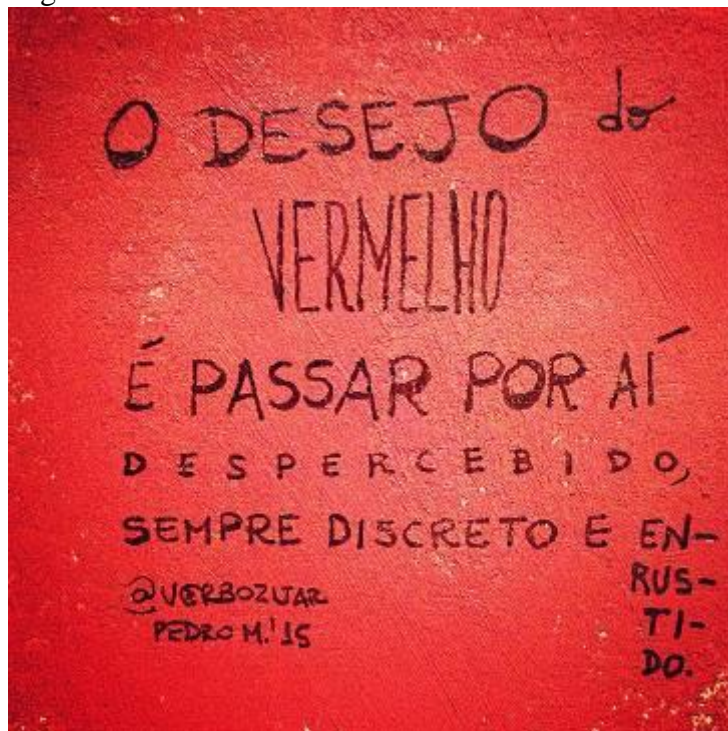 O DESEJO do
VERMELHO
É PASSAR POR AÍ
DESPERCEBIDO,
SEMPRE DISCRETO E EN-
RUS-
TI-
DO.
@VERBOZUAR
PEDRO M.'15